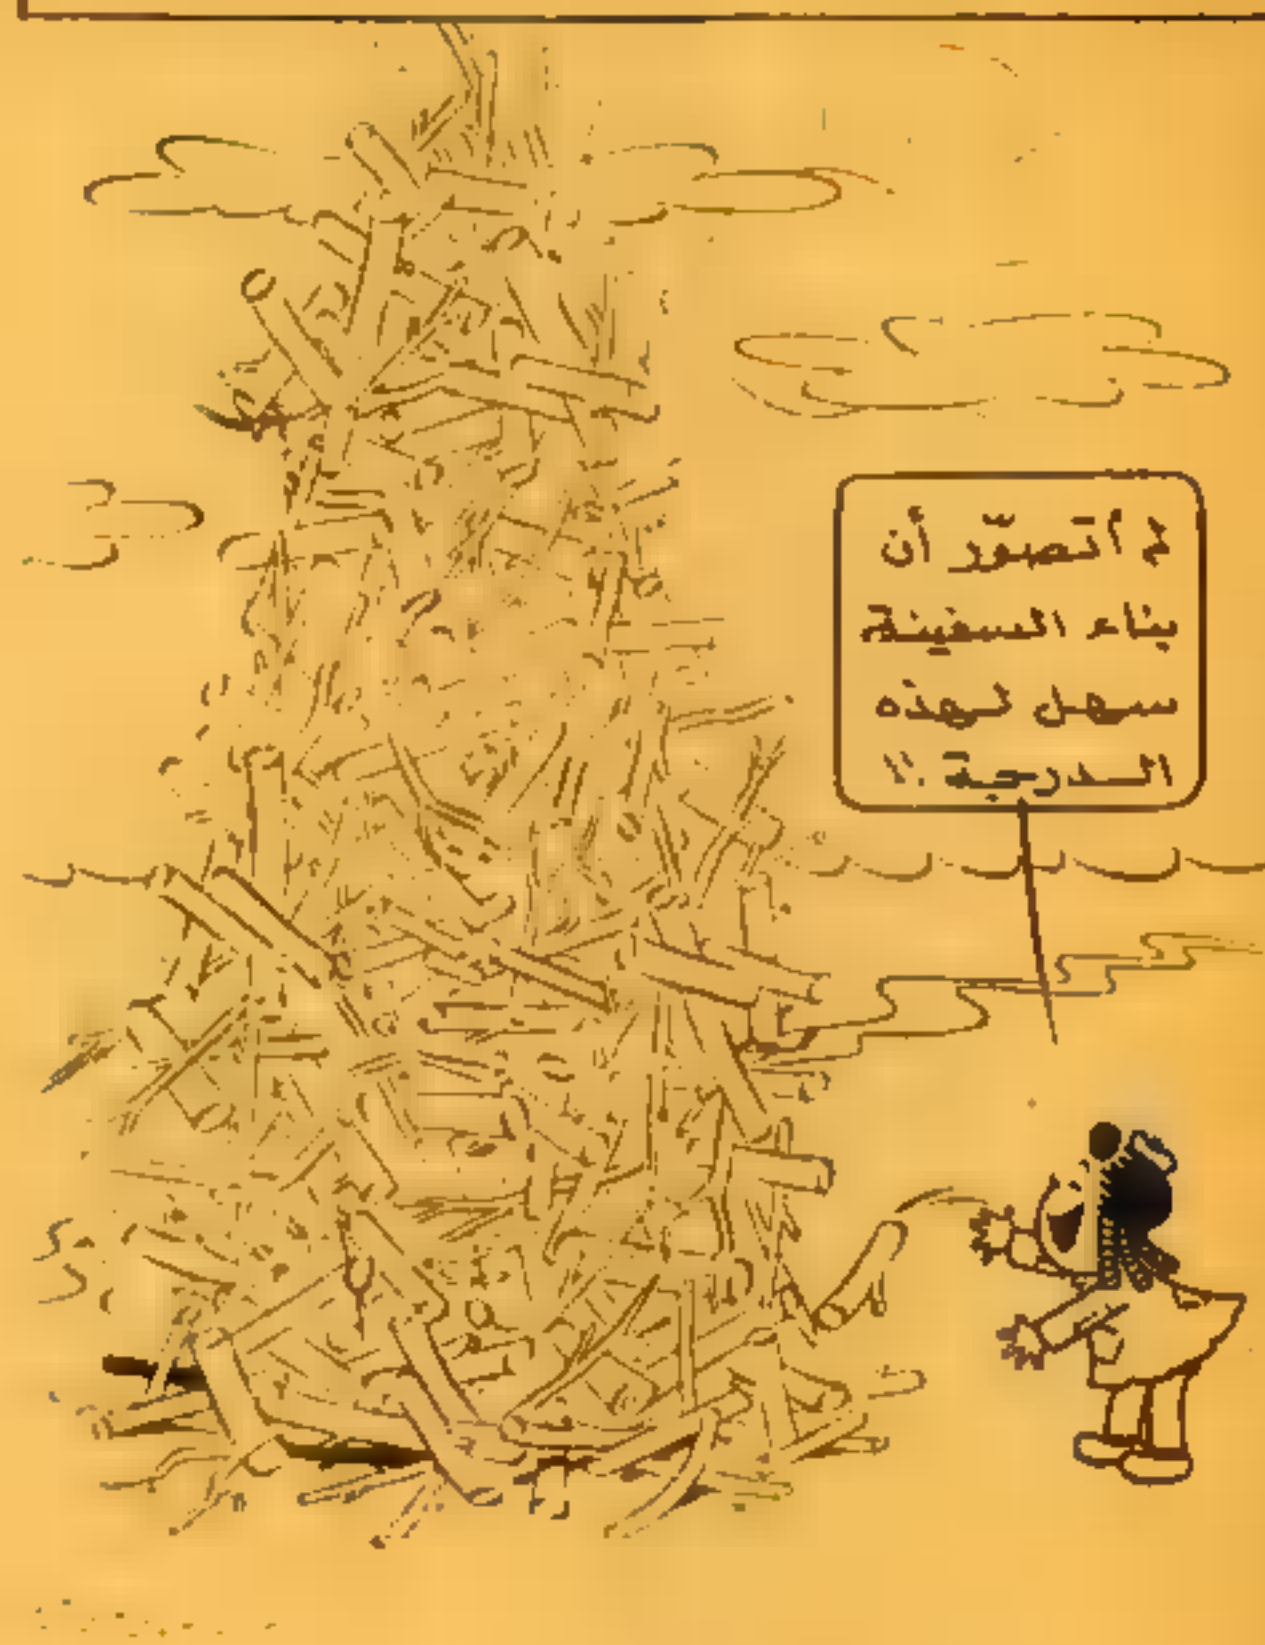 لم أتصوّر أن
بناء السفينة
سهل لهذه
الدرجة !!